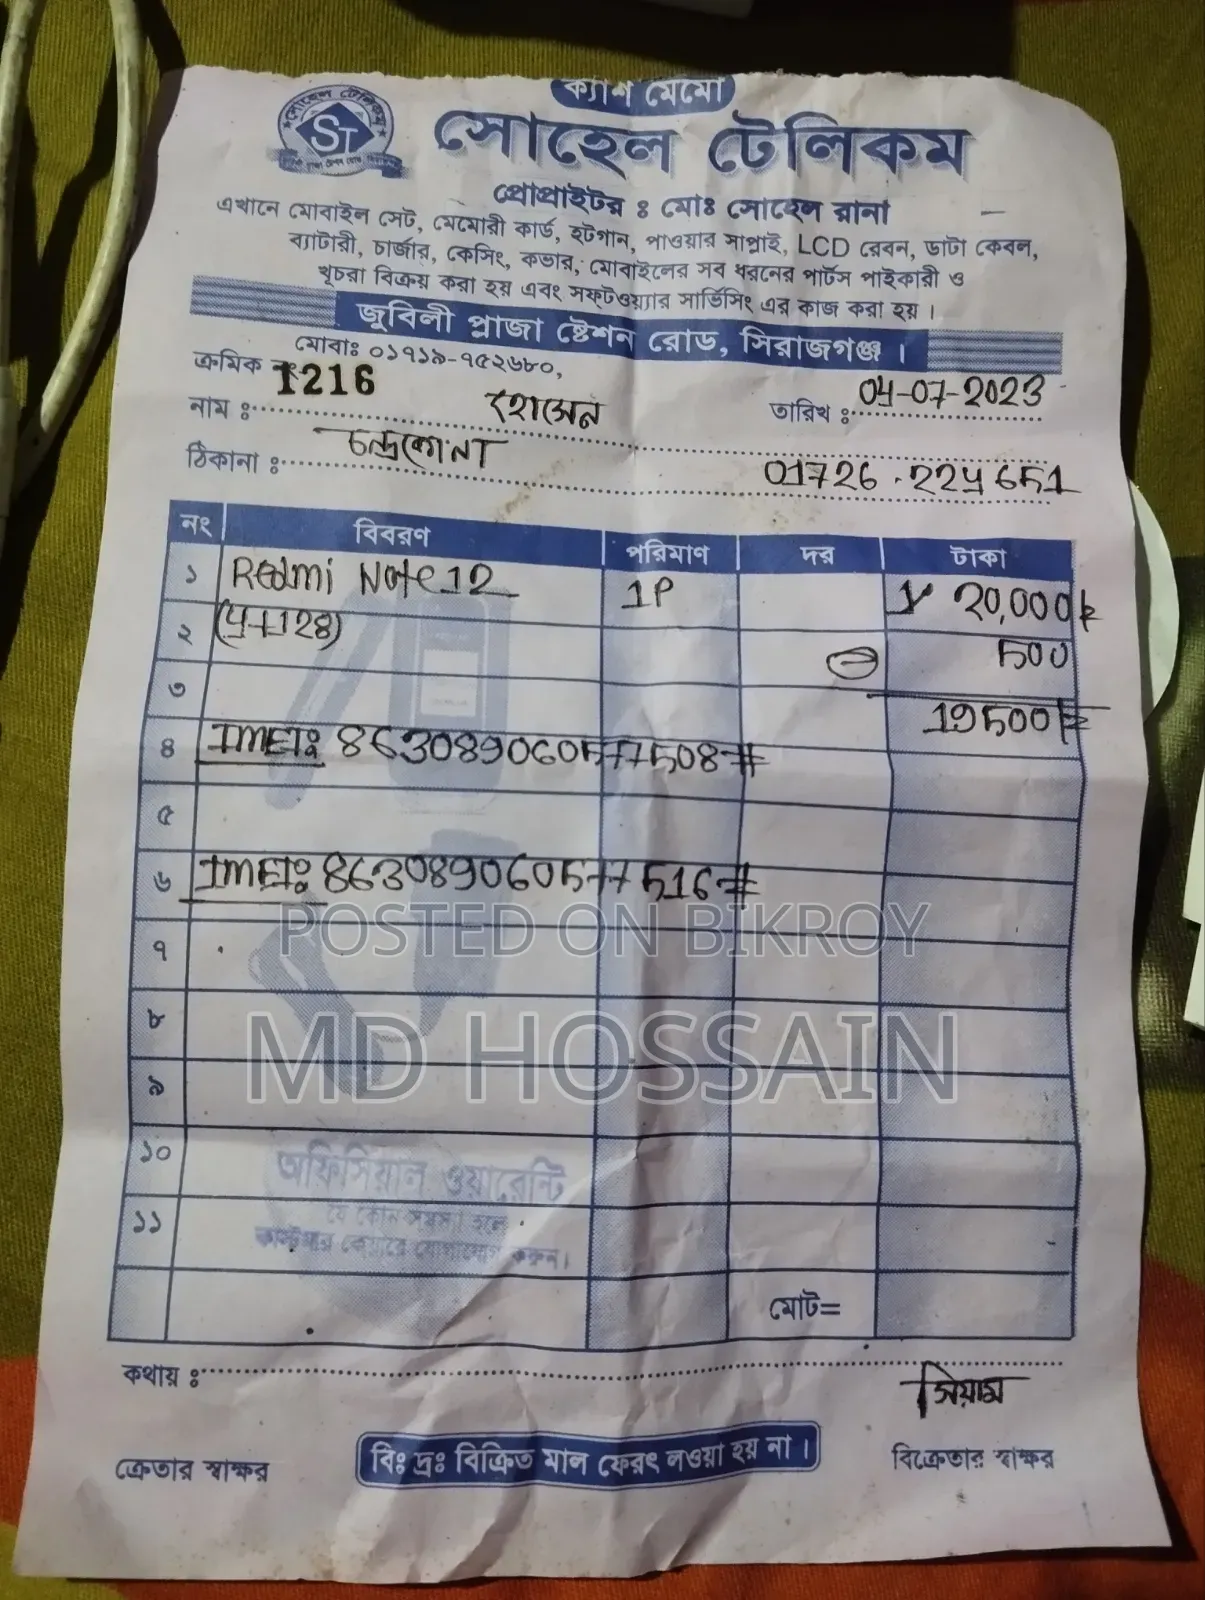 ক্যাশ মেমো
সোহেল টেলিকম
ST
সোহেল টেলিকম
প্রোপ্রাইটর ঃ মোঃ সোহেল রানা
এখানে মোবাইল সেট, মেমোরী কার্ড, হটগান, পাওয়ার সাপ্লাই, LCD রেবন, ডাটা কেবল,
ব্যাটারী, চার্জার, কেসিং, কভার, মোবাইলের সব ধরনের পার্টস পাইকারী ও
খূচরা বিক্রয় করা হয় এবং সফ্টওয়্যার সার্ভিসিং এর কাজ করা হয় ।
জুবিলী প্লাজা ষ্টেশন রোড, সিরাজগঞ্জ ।
মোবাঃ ০১৭১৯-৭৫২৬৮০,
ক্রমিক 1216
নাম ঃ হোসেন তারিখ ঃ 04-07-2023
ঠিকানা ঃ চন্দ্রকোনা 01726-224651
নং বিবরণ পরিমাণ দর টাকা
১ Redmi Note 12 1P 20,000
২ (4+128) 500
৩ 19500
৪ IMEI: 863089060577508#
৫
৬ IMEI: 863089060577516#
৭
৮
৯
১০
১১
অফিসিয়াল ওয়ারেন্টি
যে কোন সমস্যা হলে
কাস্টমার কেয়ারে যোগাযোগ করুন।
মোট=
কথায় ঃ
সিয়াম
ক্রেতার স্বাক্ষর বিঃ দ্রঃ বিক্রিত মাল ফেরৎ লওয়া হয় না । বিক্রেতার স্বাক্ষর
POSTED ON BIKROY
MD HOSSAIN